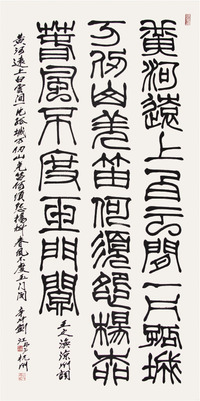 黄河遠上白云間一片孤城
万仞山羌笛何須怨楊柳
春風不度玉門關
王之渙涼州詞
黄河遠上白雲間一片孤城万仞山羌笛何須怨楊柳春風不度玉门関 劉江 杭州